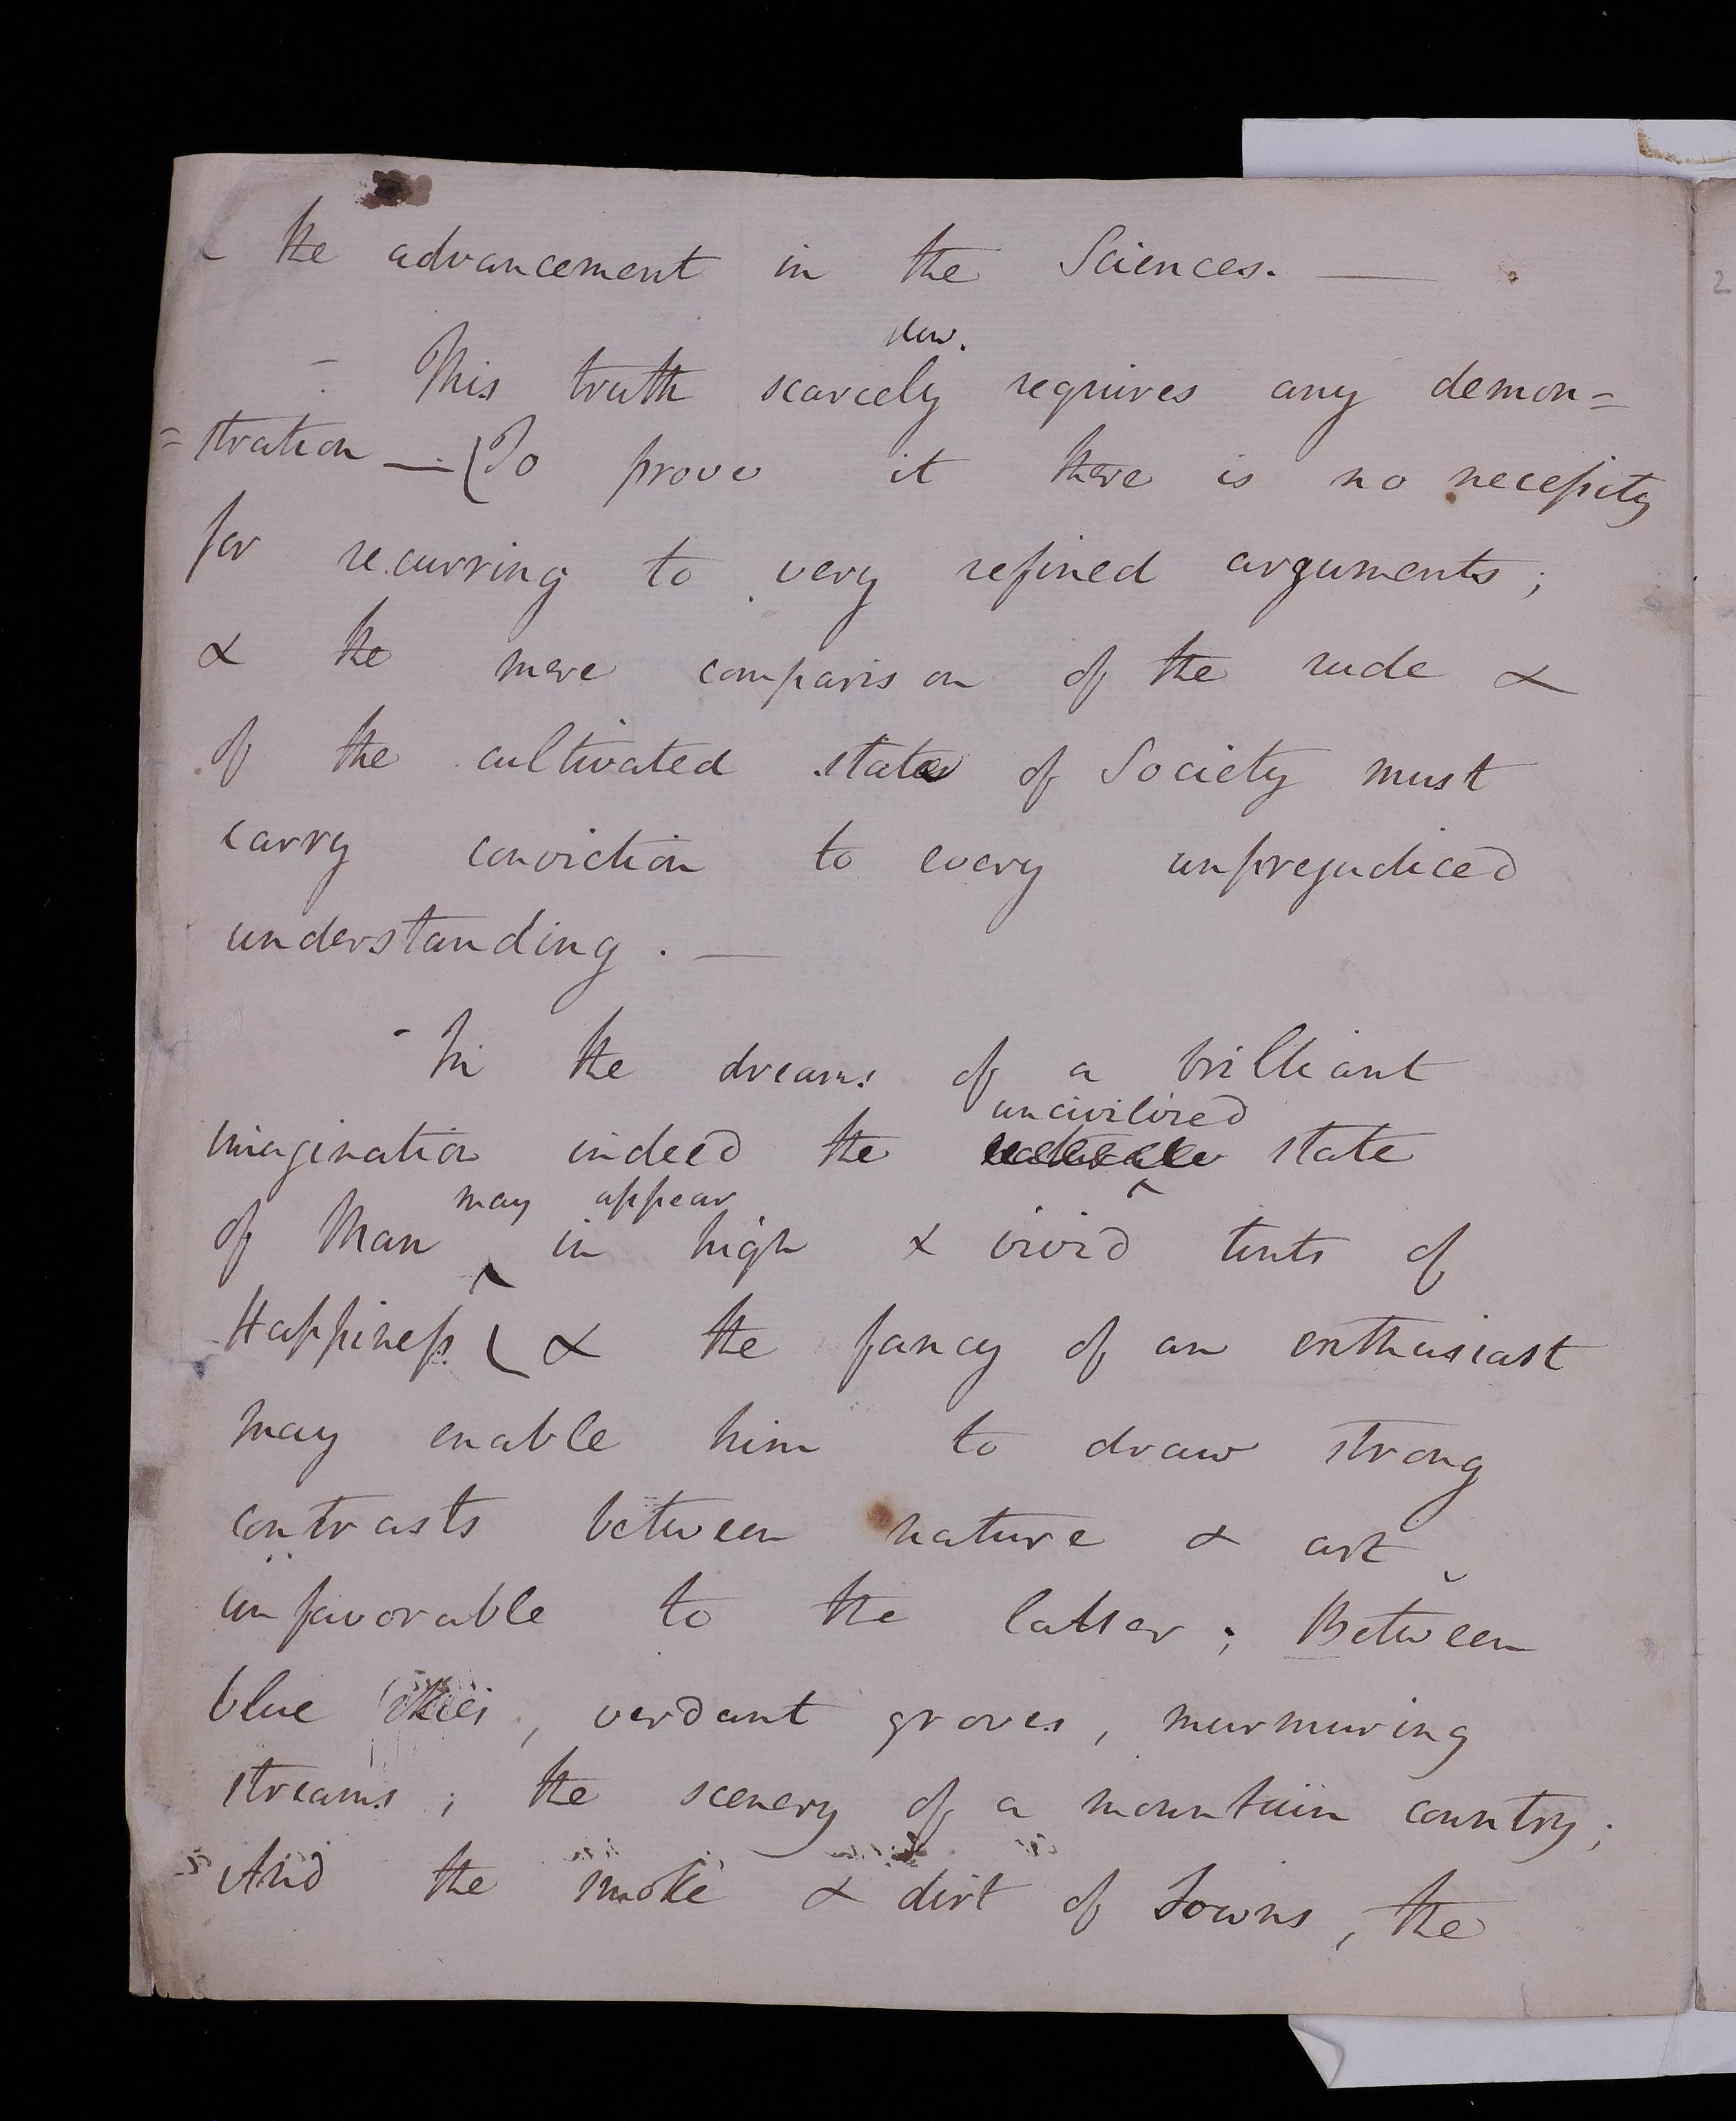 the advancement in the Sciences. —
This truth scarcely requires any demon=
=stration — (To prove it there is no necessity
for recurring to very refined arguments;
& the mere comparison of the rude &
of the cultivated state of Society must
carry conviction to every unprejudiced
understanding. —
- In the dreams of a brilliant
uncivilized
imagination indeed the state
may appear
of Man in high & vivid tints of
Happiness ( & the fancy of an enthusiast
may enable him to draw strong
contrasts between nature & art
unfavorable to the latter; Between
blue skies, verdant groves, murmuring
streams; the scenery of a mountain country;
And the smoke & dirt of Towns, the
2